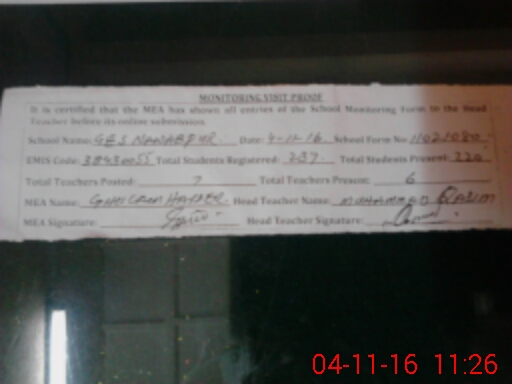 MONITORING VISIT PROOF
It is certified that the MEA has shown all entries of the School Monitoring Form to the Head
Teacher before its online submission.
School Name: GES Date: 4-11-16 School Form No:
EMIS Code: 38430055 Total Students Registered: 237 Total Students Present: 220
Total Teachers Posted: 7 Total Teachers Present: 6
MEA Name: GHULAM HAIDER Head Teacher Name: MUHAMMAD QASIM
MEA Signature: Head Teacher Signature:
04-11-16 11:26